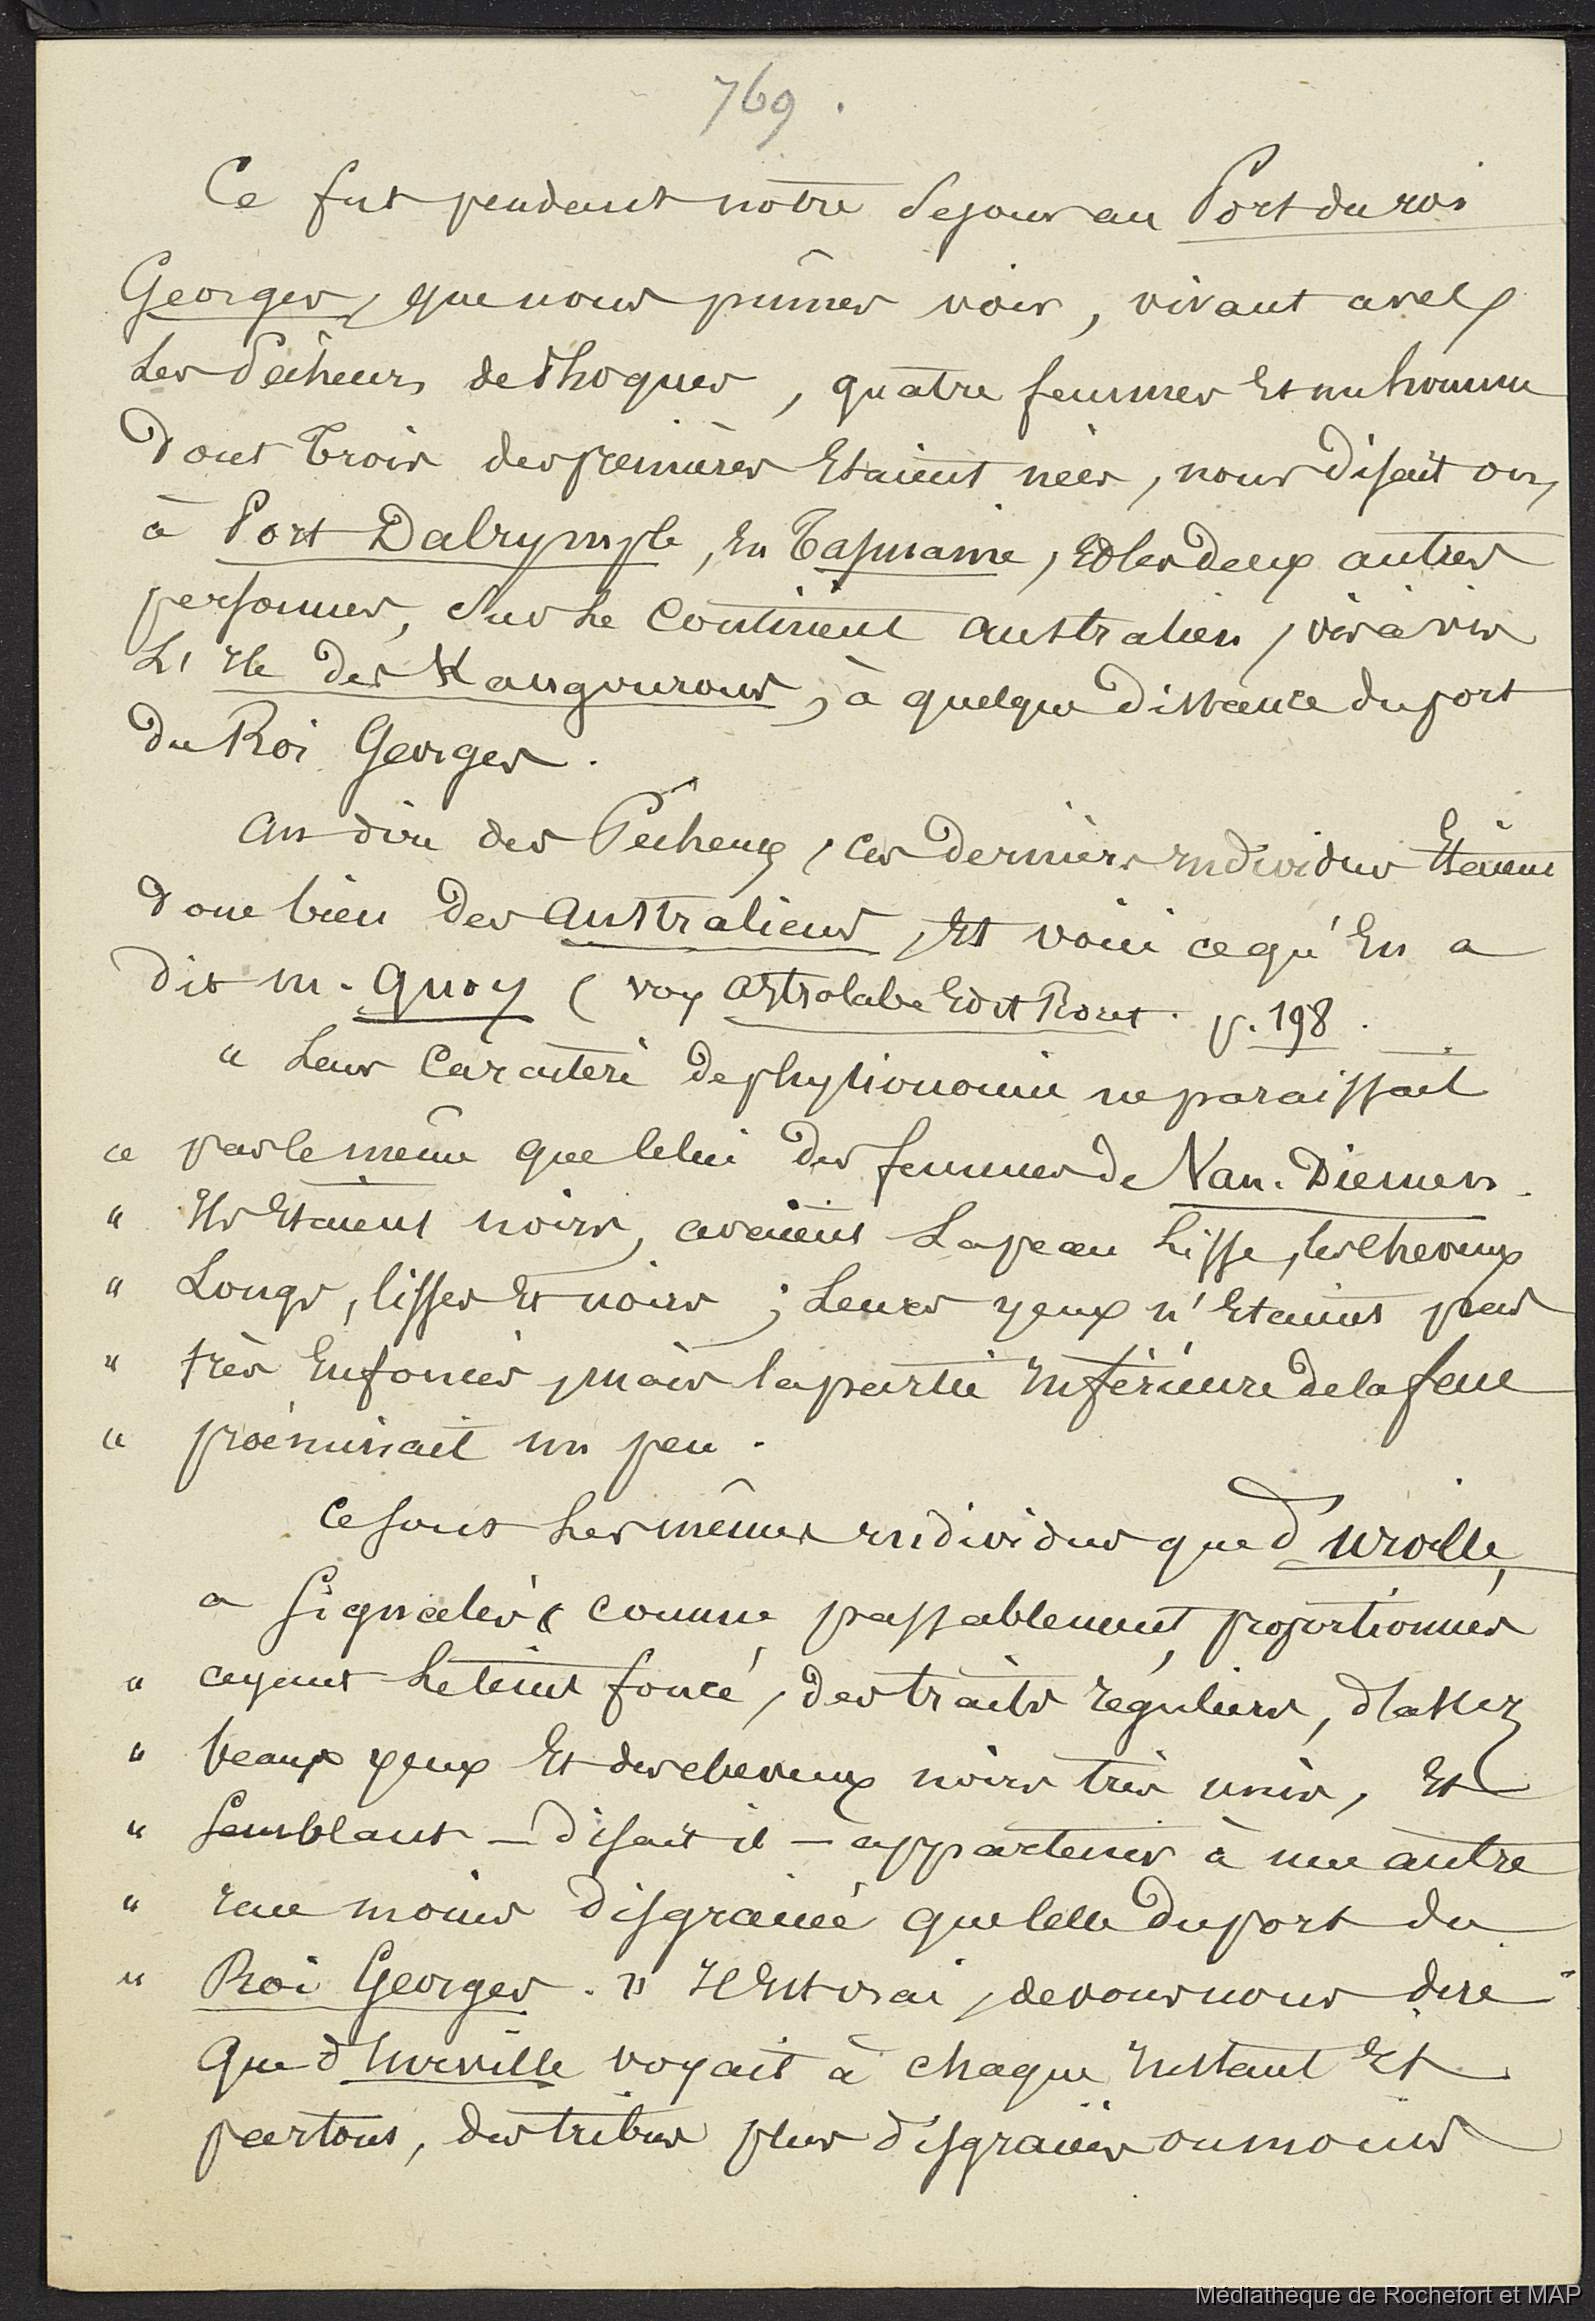 769.
Ce fut pendant notre Sejour au Port du roi
Georges, que nous pûmes voir, vivant avec
Les Pêcheurs de Phoques, quatre femmes Et un homme
Dont Trois des premières Etaient nées, nous Disait on,
à Port Dalrymple, En Tasmanie, Et les deux autres
personnes, Sur Le Continent australien, vis à vis
L'Ile des Kangourous, à quelque Distance du port
Du Roi Georges.
Au dire des Pêcheurs, Ces Derniers Individus Etaient
Donc bien des Australiens, Et voici ce qu'En a
Dit M. Quoy (voy Astrolabe Edit Roret. p. 198.
" Leur Caractère de physionomie ne paraissait
" pas le même que Celui des femmes de Van-Diemen.
" Ils Etaient noirs, avaient La peau Lisse, les Cheveux
" Longs, lisses Et noirs; Leurs yeux n'Etaient pas
" très Enfoncés, mais la partie Inférieure de la face
" proéminait un peu.
Ce sont Les mêmes Individus que d'Urville,
a Signalés comme passablement proportionnés
" ayant Le teint foncé, Des traits réguliers, d'assez
" beaux yeux Et des cheveux noirs très unis, Et
" Semblant — Disait il — appartenir à une autre
" race moins Disgraciée que celle Du port du
" Roi Georges. " Il Est vrai, devons nous dire
Que d'Urville voyait à Chaque Instant Et
partout, des tribus plus Disgraciés ou moins
Médiathèque de Rochefort et MAP